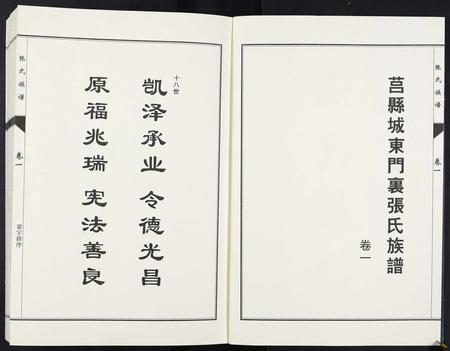 張氏族譜
卷一
莒縣城東門裏張氏族譜
卷一
十八世
凯泽承业 令德光昌
原福兆瑞 宪法善良
張氏族譜
卷一
輩字排序